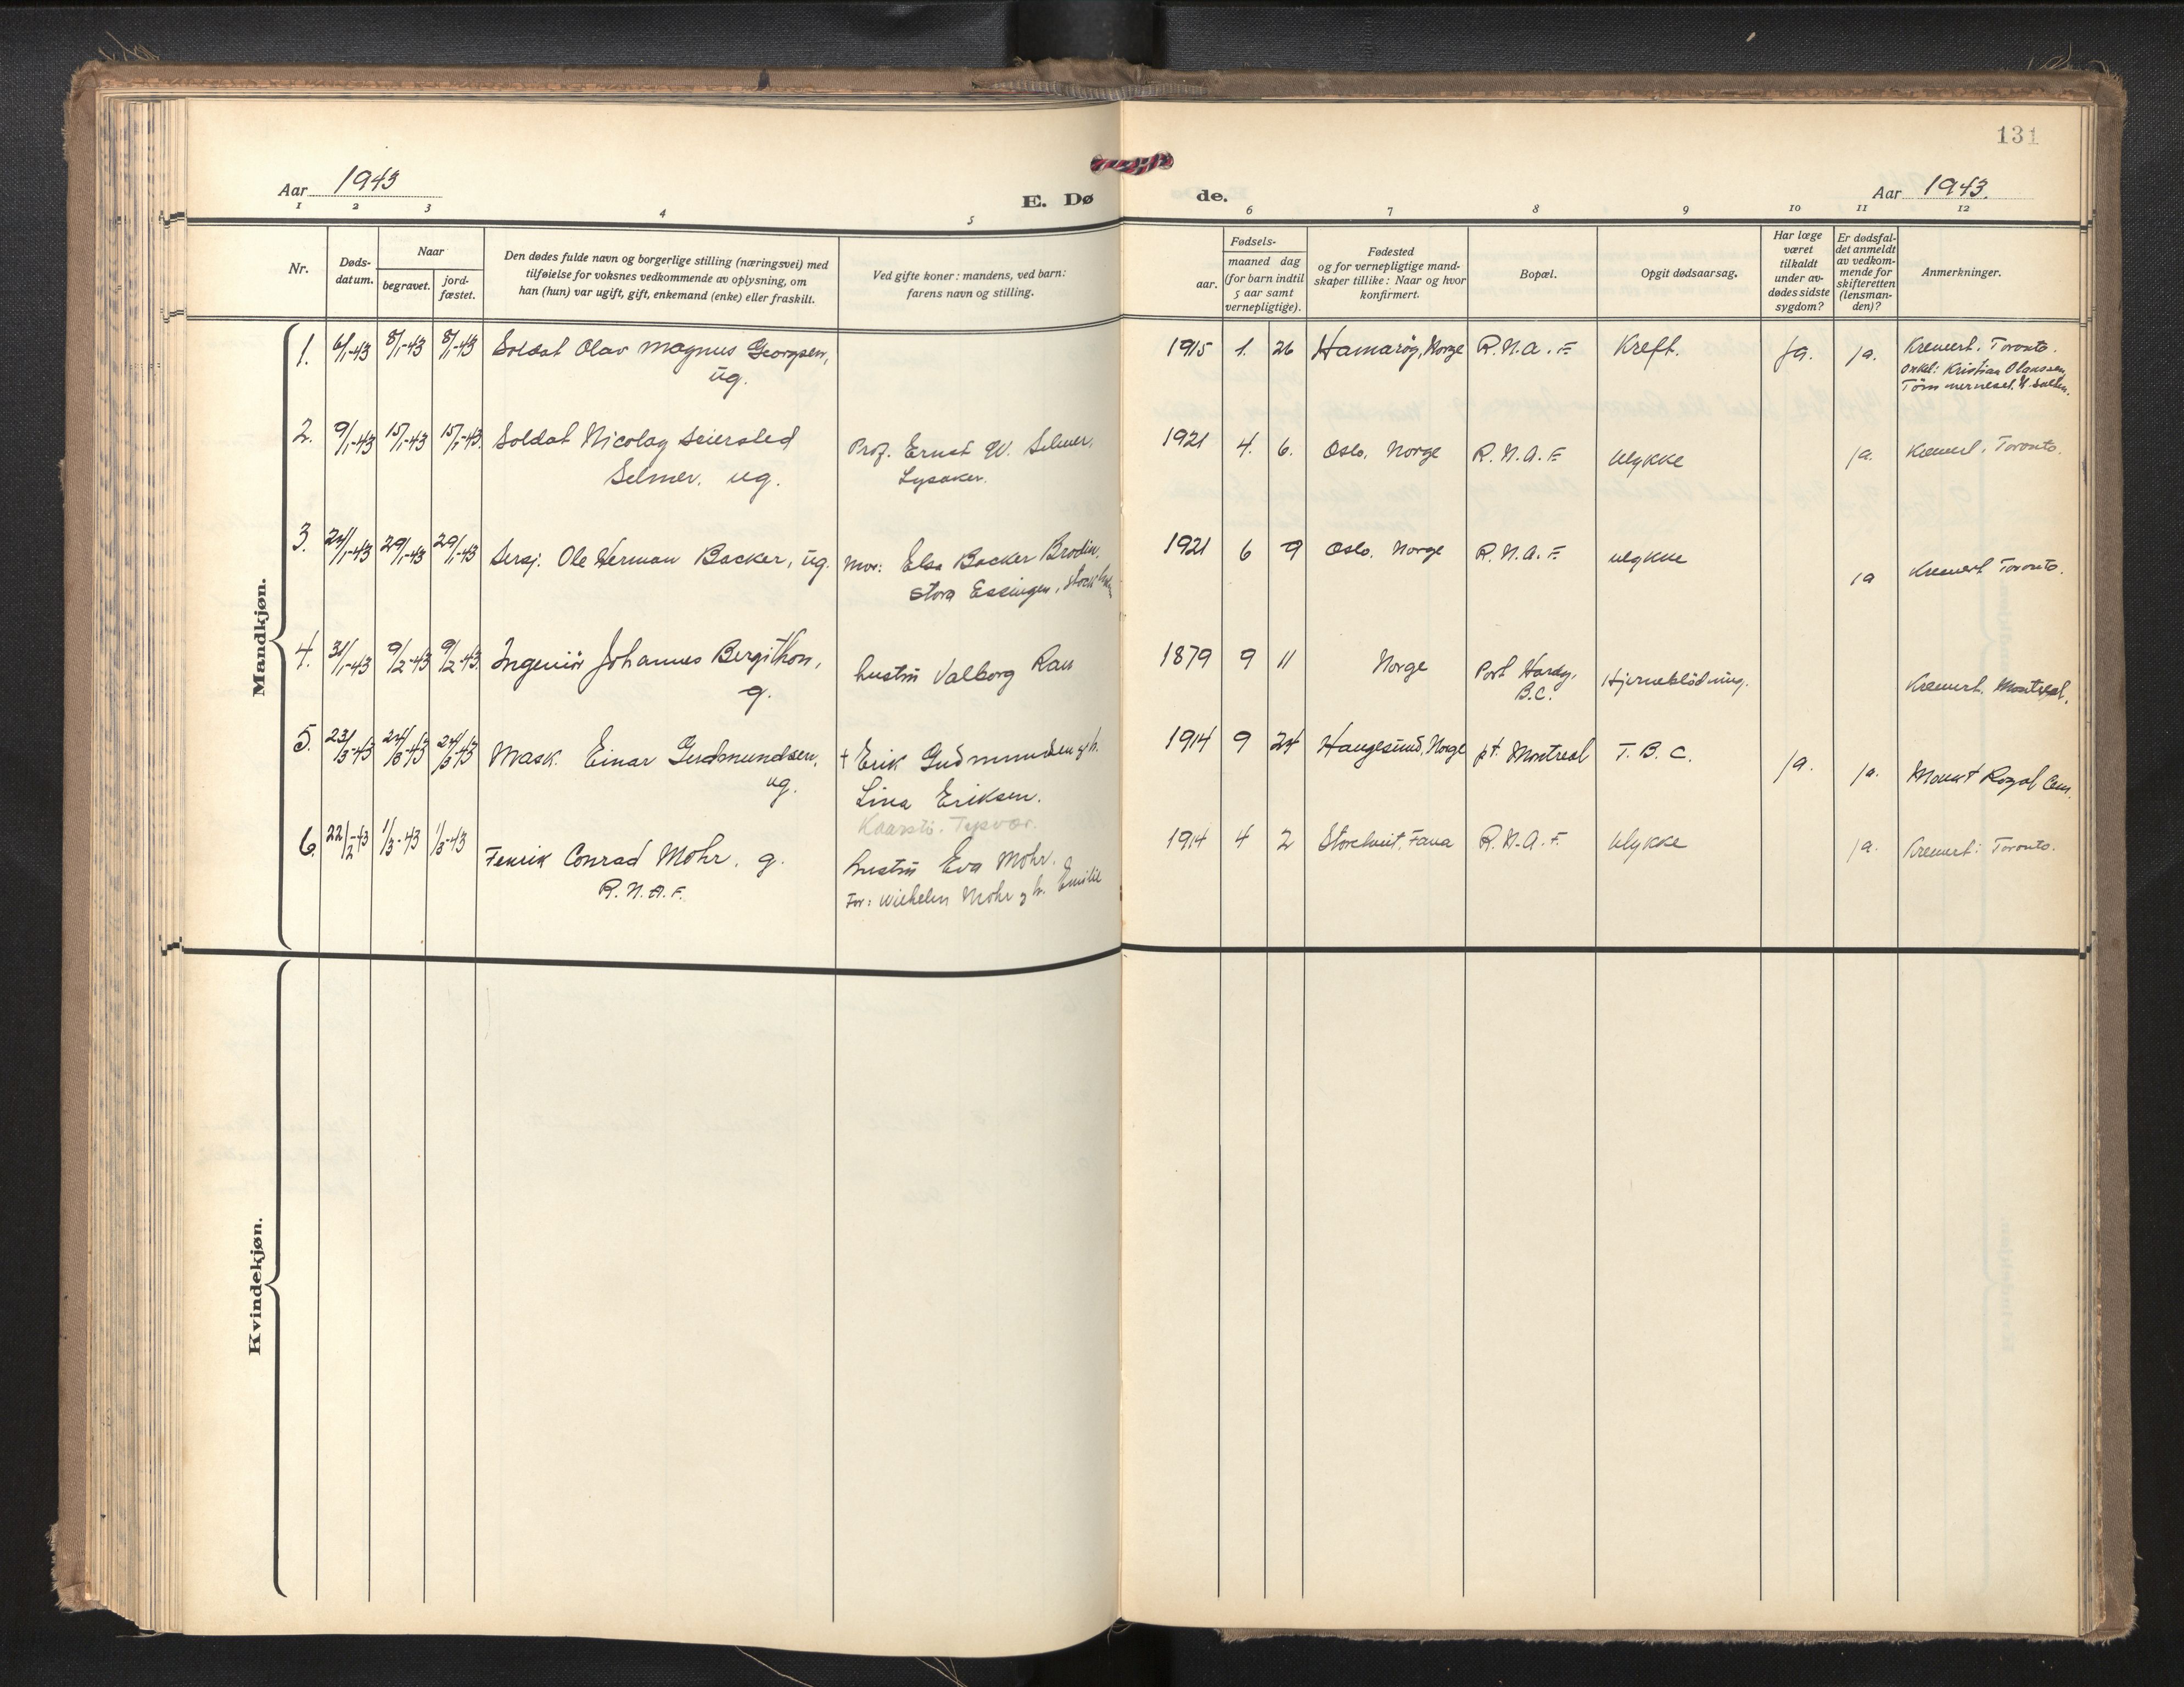 131
Aar 1943
E. Dø
de.
Aar 1943.
1 2 3 4 5 6 7 8 9 10 11 12
Nr.
Døds-
datum.
Naar
begravet.
jord-
fæstet.
Den dødes fulde navn og borgerlige stilling (næringsvei) med
tilføielse for voksnes vedkommende av oplysning, om
han (hun) var ugift, gift, enkemand (enke) eller fraskilt.
Ved gifte koner: mandens, ved barn:
farens navn og stilling.
Fødsels-
aar.
maaned dag
(for barn indtil
5 aar samt
vernepligtige).
Fødested
og for vernepligtige mand-
skaper tillike: Naar og hvor
konfirmert.
Bopæl.
Opgit dødsaarsag.
Har læge
været
tilkaldt
under av-
dødes sidste
sygdom?
Er dødsfal-
det anmeldt
av vedkom-
mende for
skifteretten
(lensman-
den)?
Anmerkninger.
Mandkjøn.
1. 6/1-43 8/1-43 8/1-43 Soldat Olav Magnus Georgsen,
ug.
1915 1. 26 Hamarøg, Norge R.N.A.F. Kreft. ja. ja. Kremert. Toronto.
Onkel: Kristian Olaussen,
Tømmerneset, N. Salten.
2. 9/1-43 15/1-43 15/1-43. Soldat Nicolay Seiersted
Selmer. ug.
Prof. Ernst W. Selmer.
Lysaker.
1921 4. 6. Oslo, Norge R.N.A.F. Ulykke ja. Kremert. Toronto.
3. 24/1-43 29/1-43 29/1-43 Sersj. Ole Herman Backer, ug.
Mor: Elsa Backer Brodin.
Stora Essingen, Stockholm
1921 6 9 Oslo, Norge R.N.A.F. Ulykke ja Kremert Toronto.
4. 31/1-43 9/2-43 9/2-43. Ingeniør Johannes Bergithon,
g.
hustru Valborg Rau
1879 9 11 Norge Port Hardy,
B.C.
Hjerneblødning. Kremert. Montreal.
5. 23/3-43 24/3-43 24/3-43 Mask. Einar Gudmundsen.
ug.
+ Erik Gudmundsen og h.
Lina Eriksen.
Kaarstø. Tysvær.
1914 9 24 Haugesund, Norge pt. Montreal T.B.C. ja. ja. Mount Royal Cem.
6. 22/2-43 1/3-43 1/3-43 Fenrik Conrad Mohr. g.
R.N.A.F.
hustru Eva Mohr.
For: Wilhelm Mohr og h. Emilie
1914 4 2 Storetveit, Fana R.N.A.F. Ulykke ja. Kremert: Toronto.
Kvindekjøn.